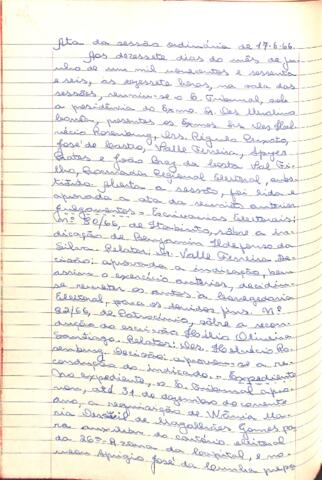 Ata da sessão ordinária de 17-6-66.
Aos dezessete dias do mês de ju-
nho de um mil novecentos e sessenta
e seis, às dezessete horas, na sala das
sessões, reuniu-se o E. Tribunal, sob
a presidência do Exmo. Sr. Des.
presentes os Exmos. Srs. Des. Hel-
vécio Rosenburg, Drs. Régulo Peixoto,
José de Castro, Valle Ferreira,
e João Braz da Costa Val Fi-
lho, Procurador Regional Eleitoral, subs-
tituto. Aberta a sessão, foi lida e
aprovada a ata da reunião anterior.
Julgamentos - Escrivanias Eleitorais:
Nº 80/66, de Itabirito, sôbre a in-
dicação de Benjamin Ildefonso da
Silva. Relator: Dr. Valle Ferreira. De-
cisão: aprovada a indicação, bem
assim o exercício anterior, decidin-
se remeter os autos à Corregedoria
Eleitoral, para os devidos fins. Nº
82/66, de Patrocínio, sôbre a recon-
dução do escrivão Hélio Oliveira
Santiago. Relator: Des. Helvécio Ro-
senburg. Decisão: aprovou-se a re-
condução do indicado. - Expediente
No expediente, o E. Tribunal apro-
vou, até 31 de dezembro do corrente
ano, a requisição de Wânia Ma-
ria de Magalhães Gomes, pa-
ra auxiliar do cartório eleitoral
da 26ª zona da Capital, e no-
meou Aprígio José da Cunha prepa-